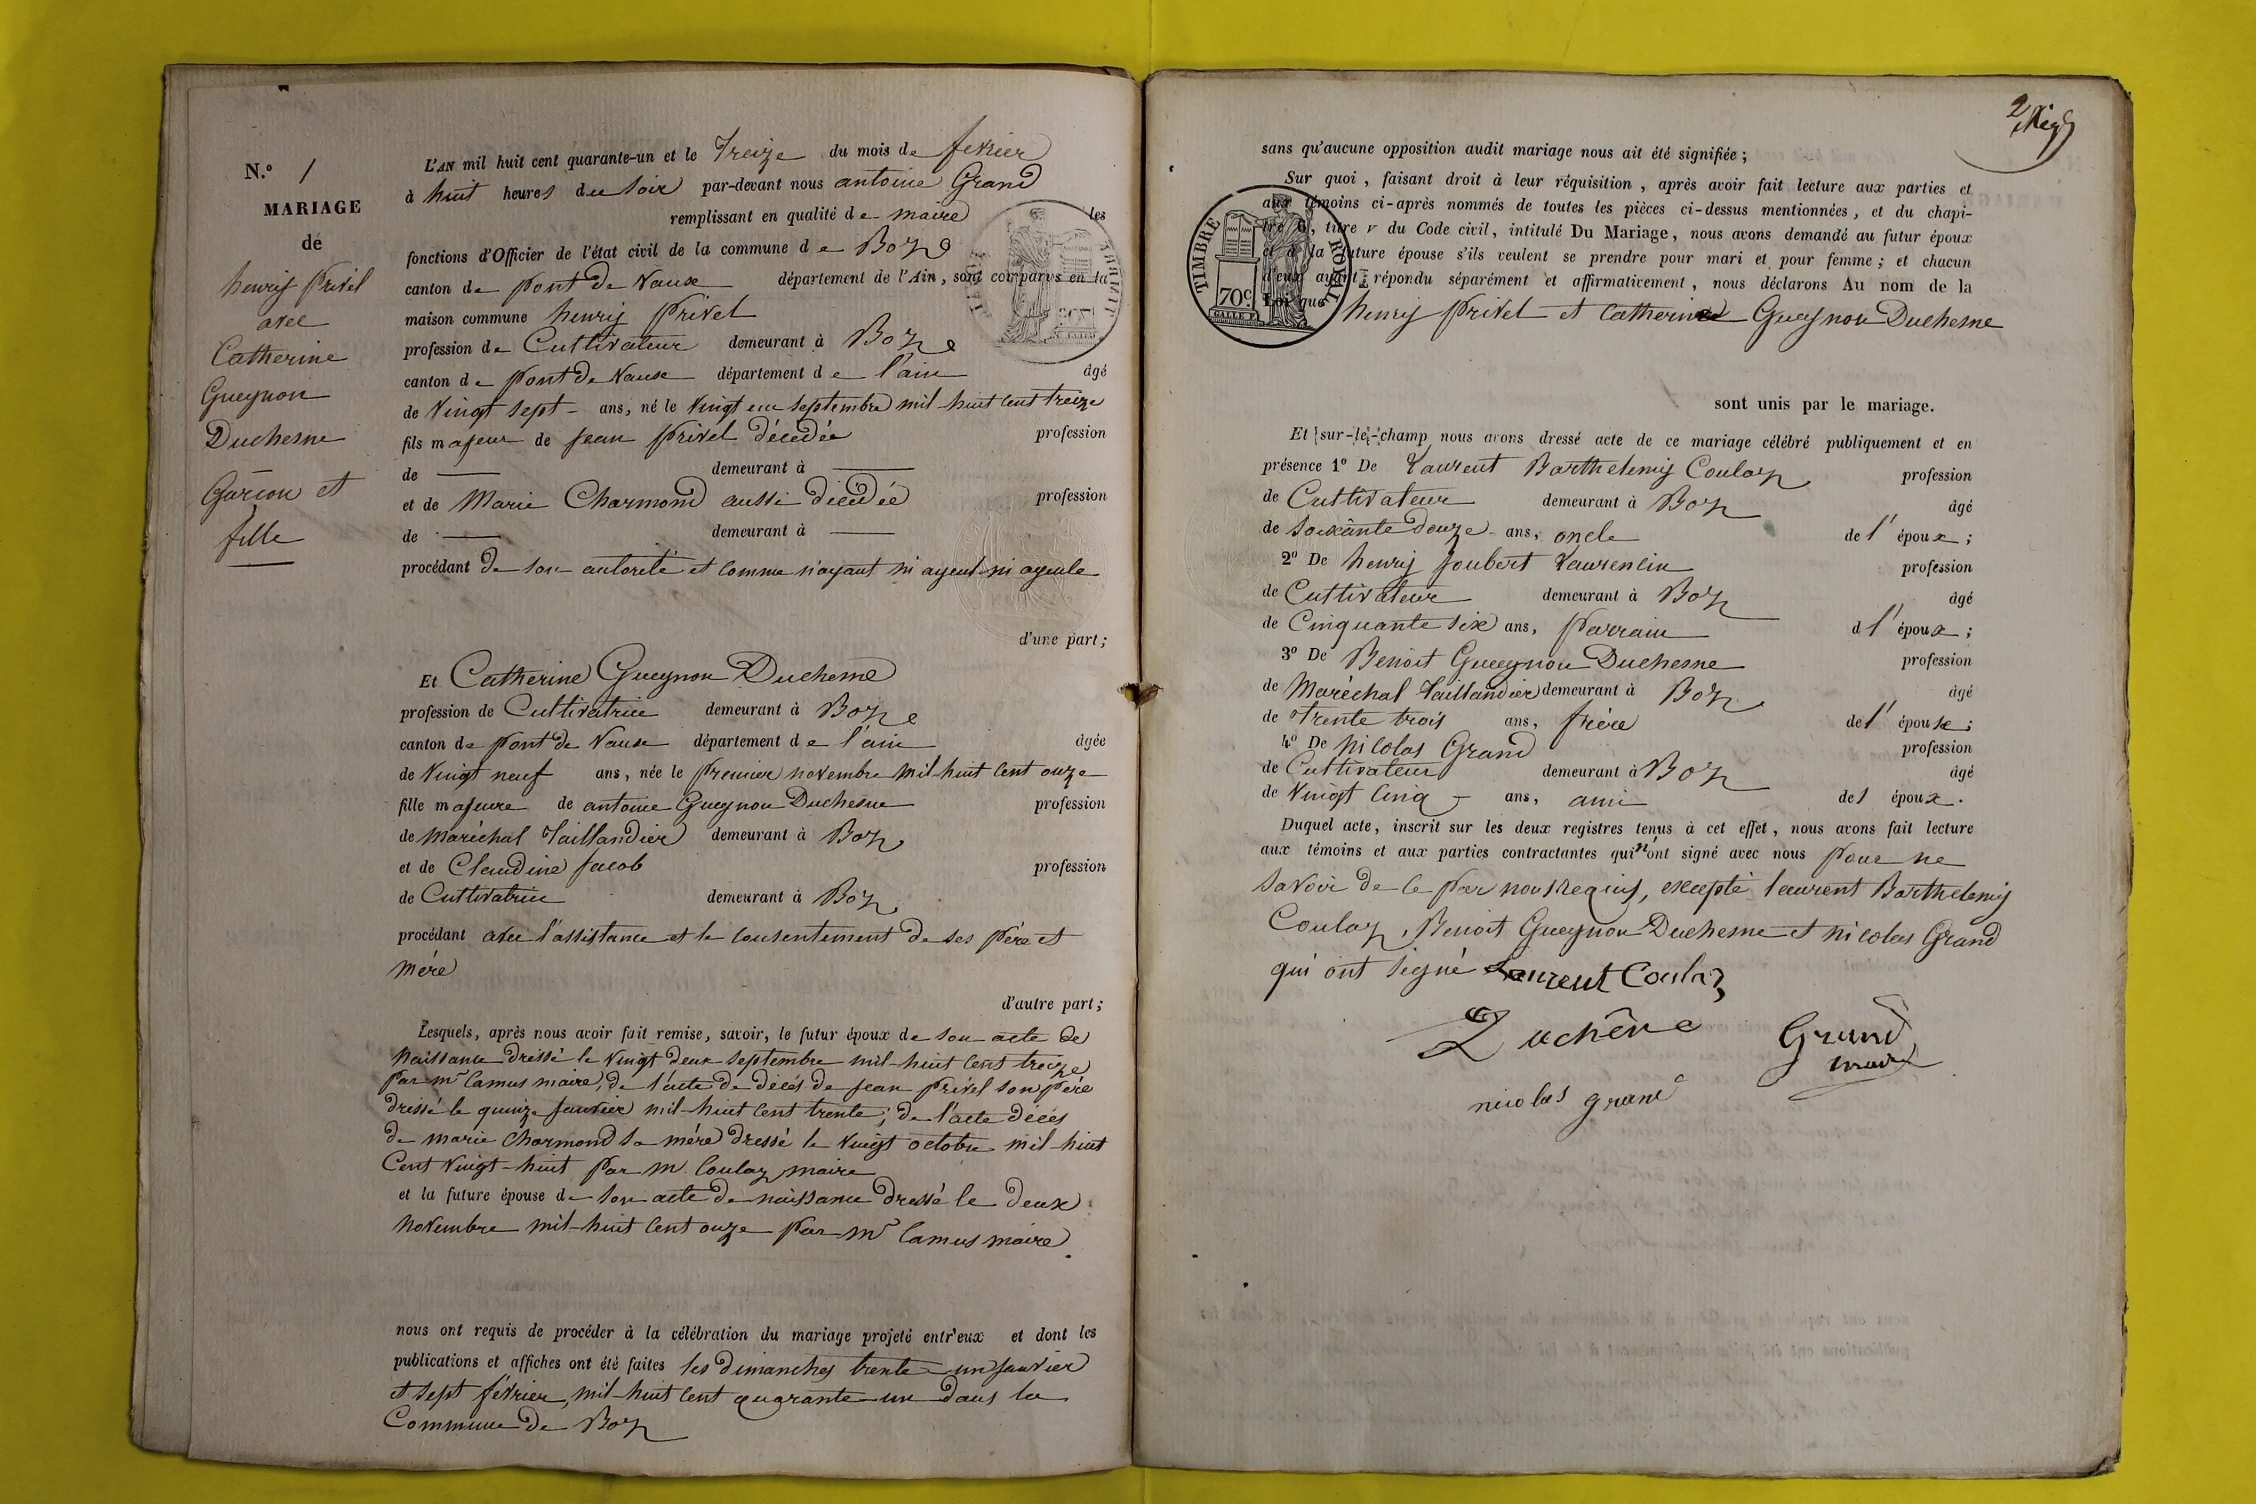 N.o 1
MARIAGE
de
henry privel
avec
Catherine
Gueynon
Duchesne
Garcon et
fille
L'AN mil huit cent quarante-un et le treize du mois de fevrier
à huit heures du soir par-devant nous antoine Grand
remplissant en qualité de maire les
fonctions d'Officier de l'état civil de la commune de Boz
canton de pont de Vaux département de l'Ain, sont comparus en la
maison commune henry privel
profession de Cultivateur demeurant à Boz
canton de pont de Vaux département de l'ain âgé
de vingt sept ans, né le vingt un septembre mil huit cent treize
fils majeur de jean privel décédée profession
de — demeurant à —
et de Marie Charmond aussi décédée profession
de — demeurant à —
procédant de son autorité et comme n'ayant ni ayeul ni ayeule
d'une part;
Et Catherine Gueynon Duchesne
profession de Cultivatrice demeurant à Boz
canton de pont de Vaux département de l'ain âgée
de vingt neuf ans, née le premier novembre mil huit cent onze
fille majeure de antoine Gueynon Duchesne profession
de Maréchal Taillandier demeurant à Boz
et de Claudine jacob profession
de Cultivatrice demeurant à Boz
procédant avec l'assistance et le consentement de ses père et
mére
d'autre part;
Lesquels, après nous avoir fait remise, savoir, le futur époux de son acte de
naissance dressé le vingt deux septembre mil huit cent treize
par mr Camus maire, de l'acte de décés de jean privel son pére
dressé le quinze janvier mil huit cent trente; de l'acte décés
de marie Charmond sa mére dressé le vingt octobre mil huit
cent vingt-huit par m Coulaz maire
et la future épouse de son acte de naissance dressé le deux
novembre mil huit cent onze par mr Camus maire
nous ont requis de procéder à la célébration du mariage projeté entr'eux et dont les
publications et affiches ont été faites les dimanches trente un janvier
et sept février, mil huit cent quarante un dans la
Commune de Boz
2
sans qu'aucune opposition audit mariage nous ait été signifiée;
Sur quoi, faisant droit à leur réquisition, après avoir fait lecture aux parties et
aux témoins ci-après nommés de toutes les pièces ci-dessus mentionnées, et du chapi-
tre 6, titre v du Code civil, intitulé Du Mariage, nous avons demandé au futur époux
et à la future épouse s'ils veulent se prendre pour mari et pour femme; et chacun
d'eux ayant répondu séparément et affirmativement, nous déclarons Au nom de la
Loi que henry privel et Catherine Gueynon Duchesne
TIMBRE ROYAL
70c.
sont unis par le mariage.
Et sur-le-champ nous avons dressé acte de ce mariage célébré publiquement et en
présence 1o De Laurent Barthelemy Coulaz profession
de Cultivateur demeurant à Boz âgé
de soixante douze ans, oncle de l'époux;
2o De henry joubert Laurencin profession
de Cultivateur demeurant à Boz âgé
de Cinquante six ans, parrain d l'époux;
3o De Benoit Gueynon Duchesne profession
de Maréchal Taillandier demeurant à Boz âgé
de trente trois ans, frère de l'épouse;
4o De nicolas Grand profession
de Cultivateur demeurant à Boz âgé
de vingt cinq ans, ami del époux.
Duquel acte, inscrit sur les deux registres tenus à cet effet, nous avons fait lecture
aux témoins et aux parties contractantes qui n'ont signé avec nous pour ne
savoir de ce par nous requis, excepté laurent Barthelemy
Coulaz, Benoit Gueynon Duchesne et nicolas Grand
qui ont signé Laurent Coulaz
Duchêne Grand
maire
nicolas grand